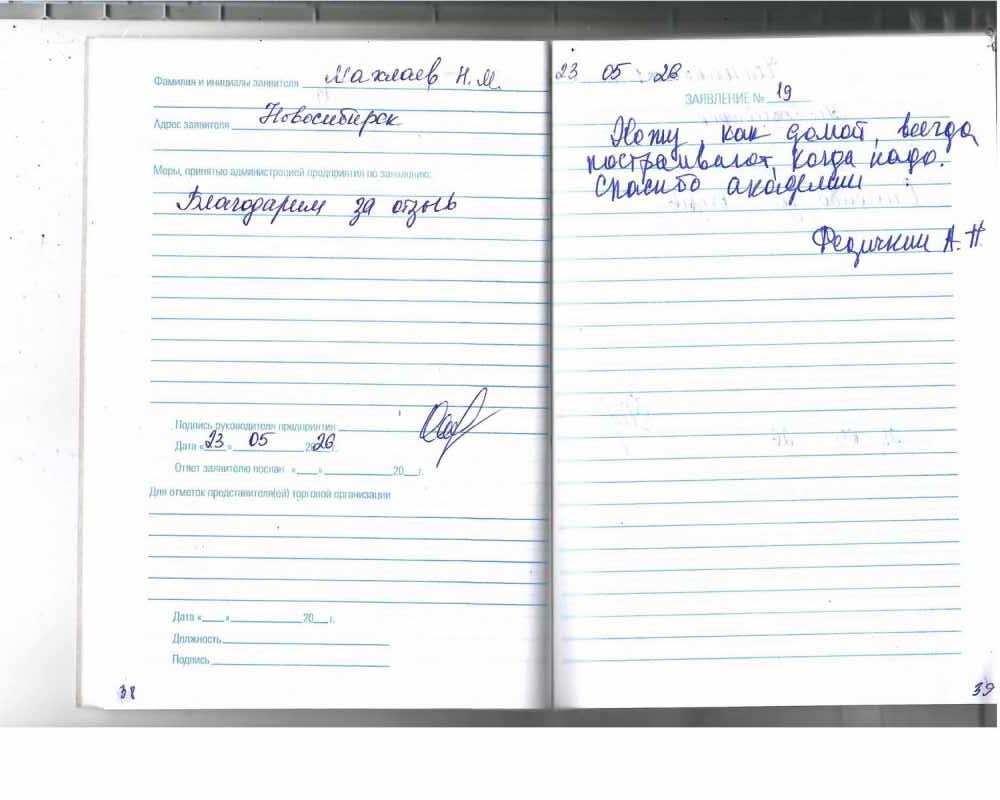 Фамилия и инициалы заявителя Махлаев Н.М.
Адрес заявителя Новосибирск
Меры, принятые администрацией предприятия по заявлению:
Благодарим за отзыв
Подпись руководителя предприятия
Дата «23» 05 2026 г.
Ответ заявителю послан «___» ___ 20__ г.
Для отметок представителя(ей) торговой организации
Дата «___» ___ 20__ г.
Должность
Подпись
38
23 05 26
ЗАЯВЛЕНИЕ № 19
Хожу, как домой, всегда
постраивают, когда надо.
Спасибо академии
А. Н
39